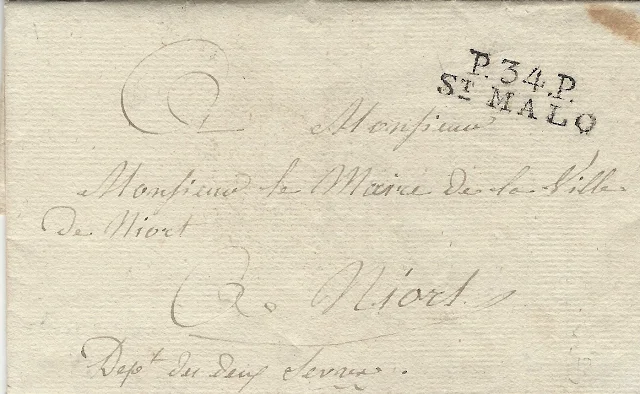 P.34.P.
ST MALO
Monsieur
Monsieur le Maire de la Ville
de Niort
A Niort
Dept des deux Sevres.